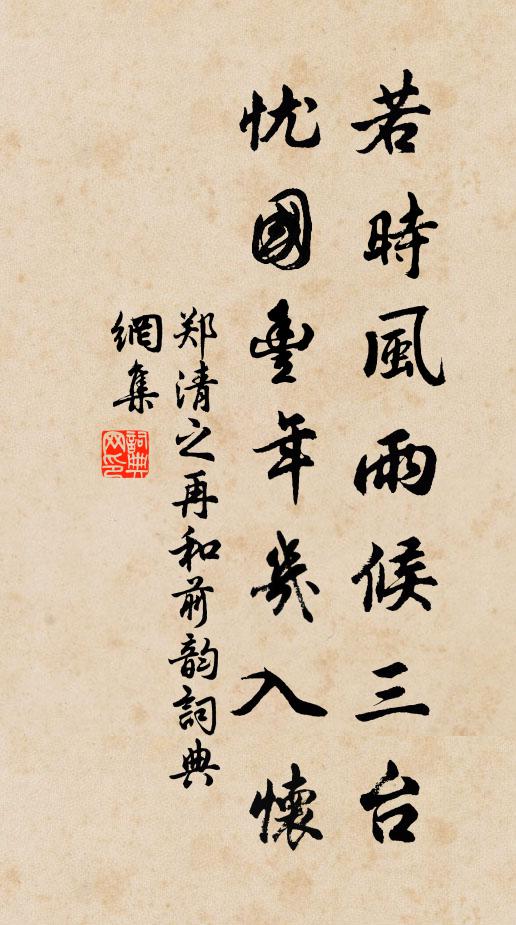 若時風雨候三台
忧國豐年幾入懷
郑清之再和前韵詞典
網集
詞典
网印